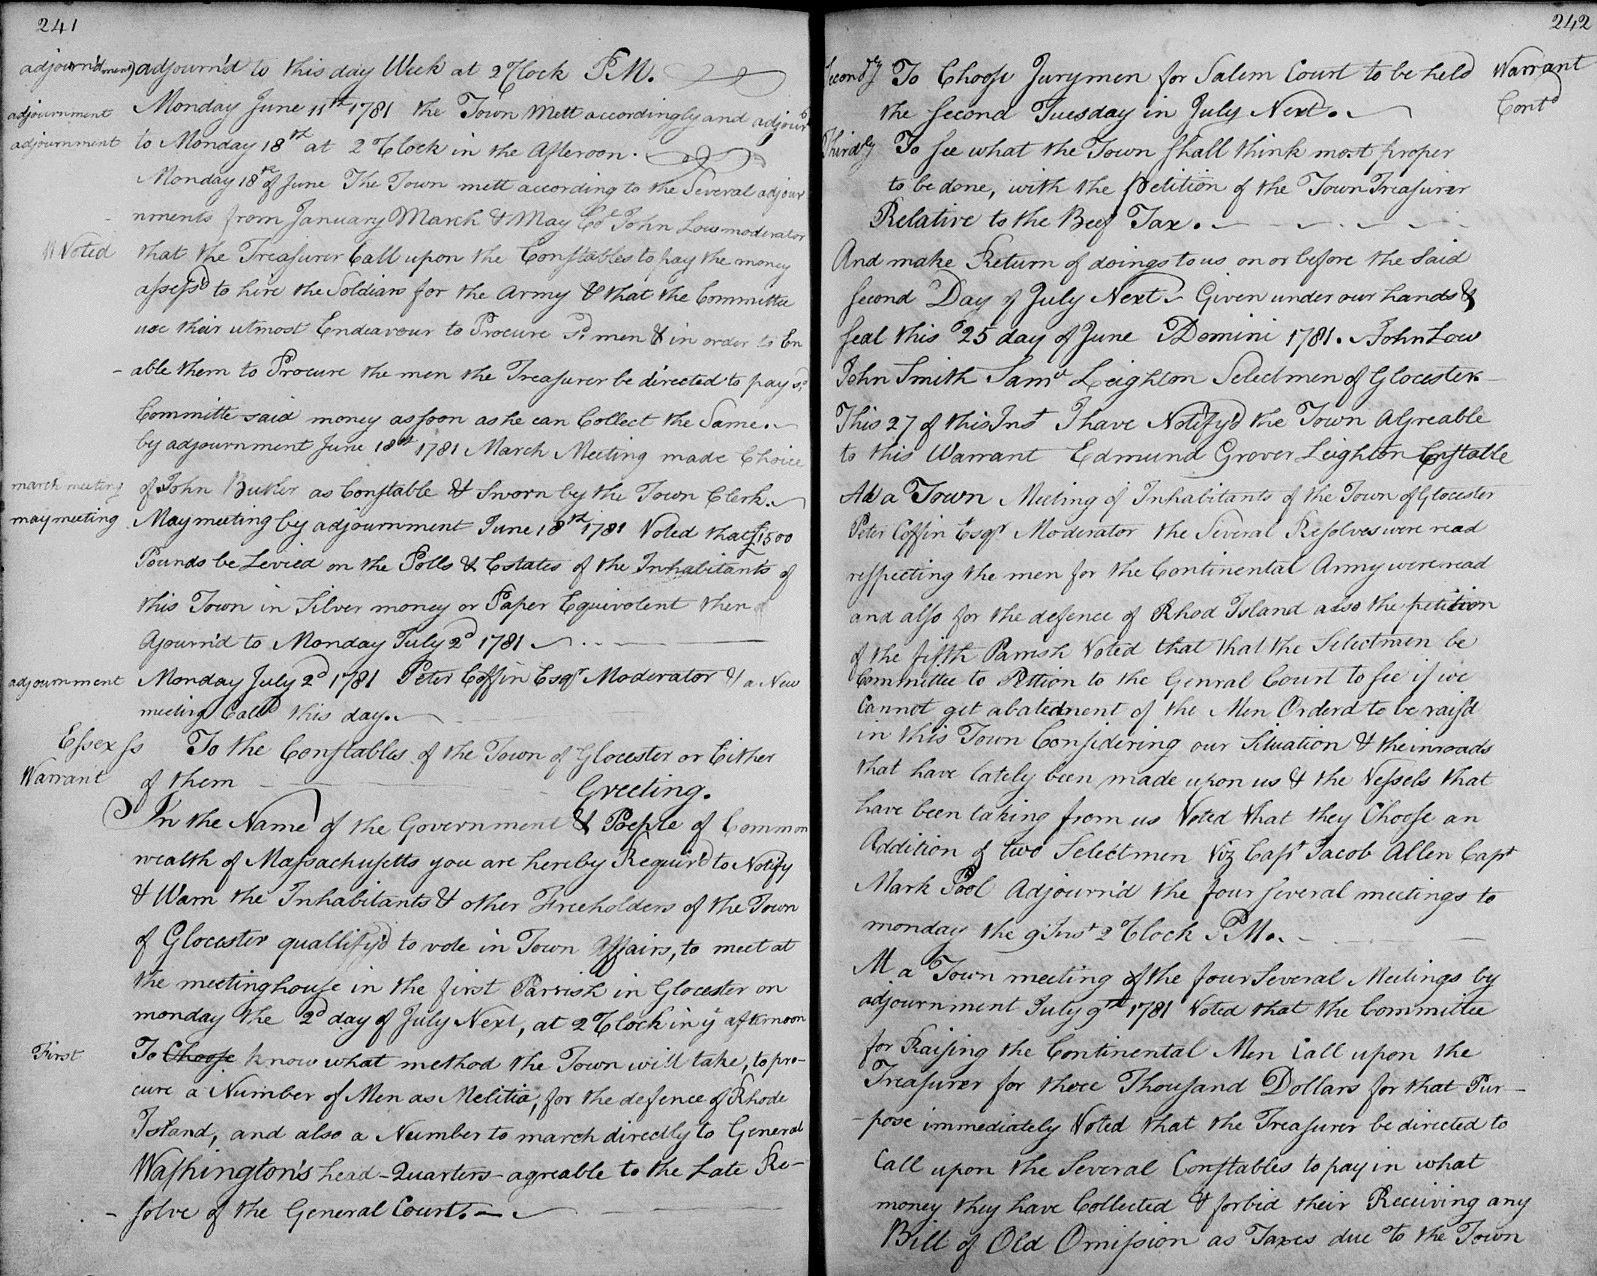 241
adjournment) adjourn'd to this day Week at 2 Clock P.M.
adjournment Monday June 11th 1781 the Town Mett accordingly and adjournd
adjournment to Monday 18th at 2 Clock in the Afteroon.
Monday 18th of June The Town mett according to the Several adjour
nments from January March & May Col John Low moderator
Voted that the Treasurer Call upon the Constables to pay the money
assess'd to hire the Soldiars for the Army & that the Committee
use their utmost Endeavour to Procure sd men & in order to En
-able them to Procure the men the Treasurer be directed to pay sd
Committe said money as soon as he can Collect the Same.
by adjournment June 18th 1781 March Meeting made Choice
march meeting of John Butler as Constable & Sworn by the Town Clerk.
may meeting May meeting by adjournment June 18th 1781 Voted that £1500
Pounds be Levied on the Polls & Estates of the Inhabitants of
this Town in Silver money or Paper Equivolent then
Ajourn'd to Monday July 2d 1781
adjournment Monday July 2d 1781 Peter Coffin Esqr Moderator & a New
meeting Calld this day.
Essex ss To the Constables of the Town of Glocester or Either
Warrant of them Greeting.
In the Name of the Government & People of Common
wealth of Massachusetts you are hereby Requir'd to Notify
& Warn the Inhabitants & other Freeholders of the Town
of Glocester quallify'd to vote in Town Affairs, to meet at
the meetinghouse in the first Parrish in Glocester on
monday the 2d day of July Next, at 2 Clock in ye afternoon
First To Choose know what method the Town will take, to pro-
cure a Number of Men as Melitia, for the defence of Rhode
Island, and also a Number to march directly to General
Washington's head-Quarters-agreable to the Late Re-
-solve of the General Court.
242
Secondly To Choose Jurymen for Salem Court to be held Warrant
the second Tuesday in July Next. Contd
Thirdly To see what the Town shall think most proper
to be done, with the petition of the Town Treasurer
Relative to the Beef Tax.
And make Return of doings to us on or before the said
second Day of July Next Given under our hands &
seal this 25 day of June Domini 1781. John Low
John Smith Saml Leighton Selectmen of Glocester
This 27 of this Inst I have Notify'd the Town Agreable
to this Warrant Edmund Grover Leighton Constable
At a Town Meeting of Inhabitants of the Town of Glocester
Peter Coffin Esqr Moderator the Several Resolves were read
respecting the men for the Continental Army were read
and also for the defence of Rhod Island also the petition
of the fifth Parrish Voted that that the Selectmen be
Committee to Pettion to the Genral Court to see if we
Cannot get abatednent of the Men Orderd to be rais'd
in this Town Considiring our Situation & the inroads
that have lately been made upon us & the Vessels that
have been taking from us Voted that they Choose an
Addition of two Selectmen Viz Capt Jacob Allen Capt
Mark Pool Adjourn'd the four several meetings to
monday the 9 Inst 2 Clock P.M.
At a Town meeting of the four Several Meetings by
adjournment July 9th 1781 Voted that the Committee
for Raising the Continental Men Call upon the
Treasurer for three Thousand Dollars for that Pur-
-pose immediately Voted that the Treasurer be directed to
Call upon the Several Constables to pay in what
money they have Collected & forbid their Receiving any
Bill of Old Omission as Taxes due to the Town